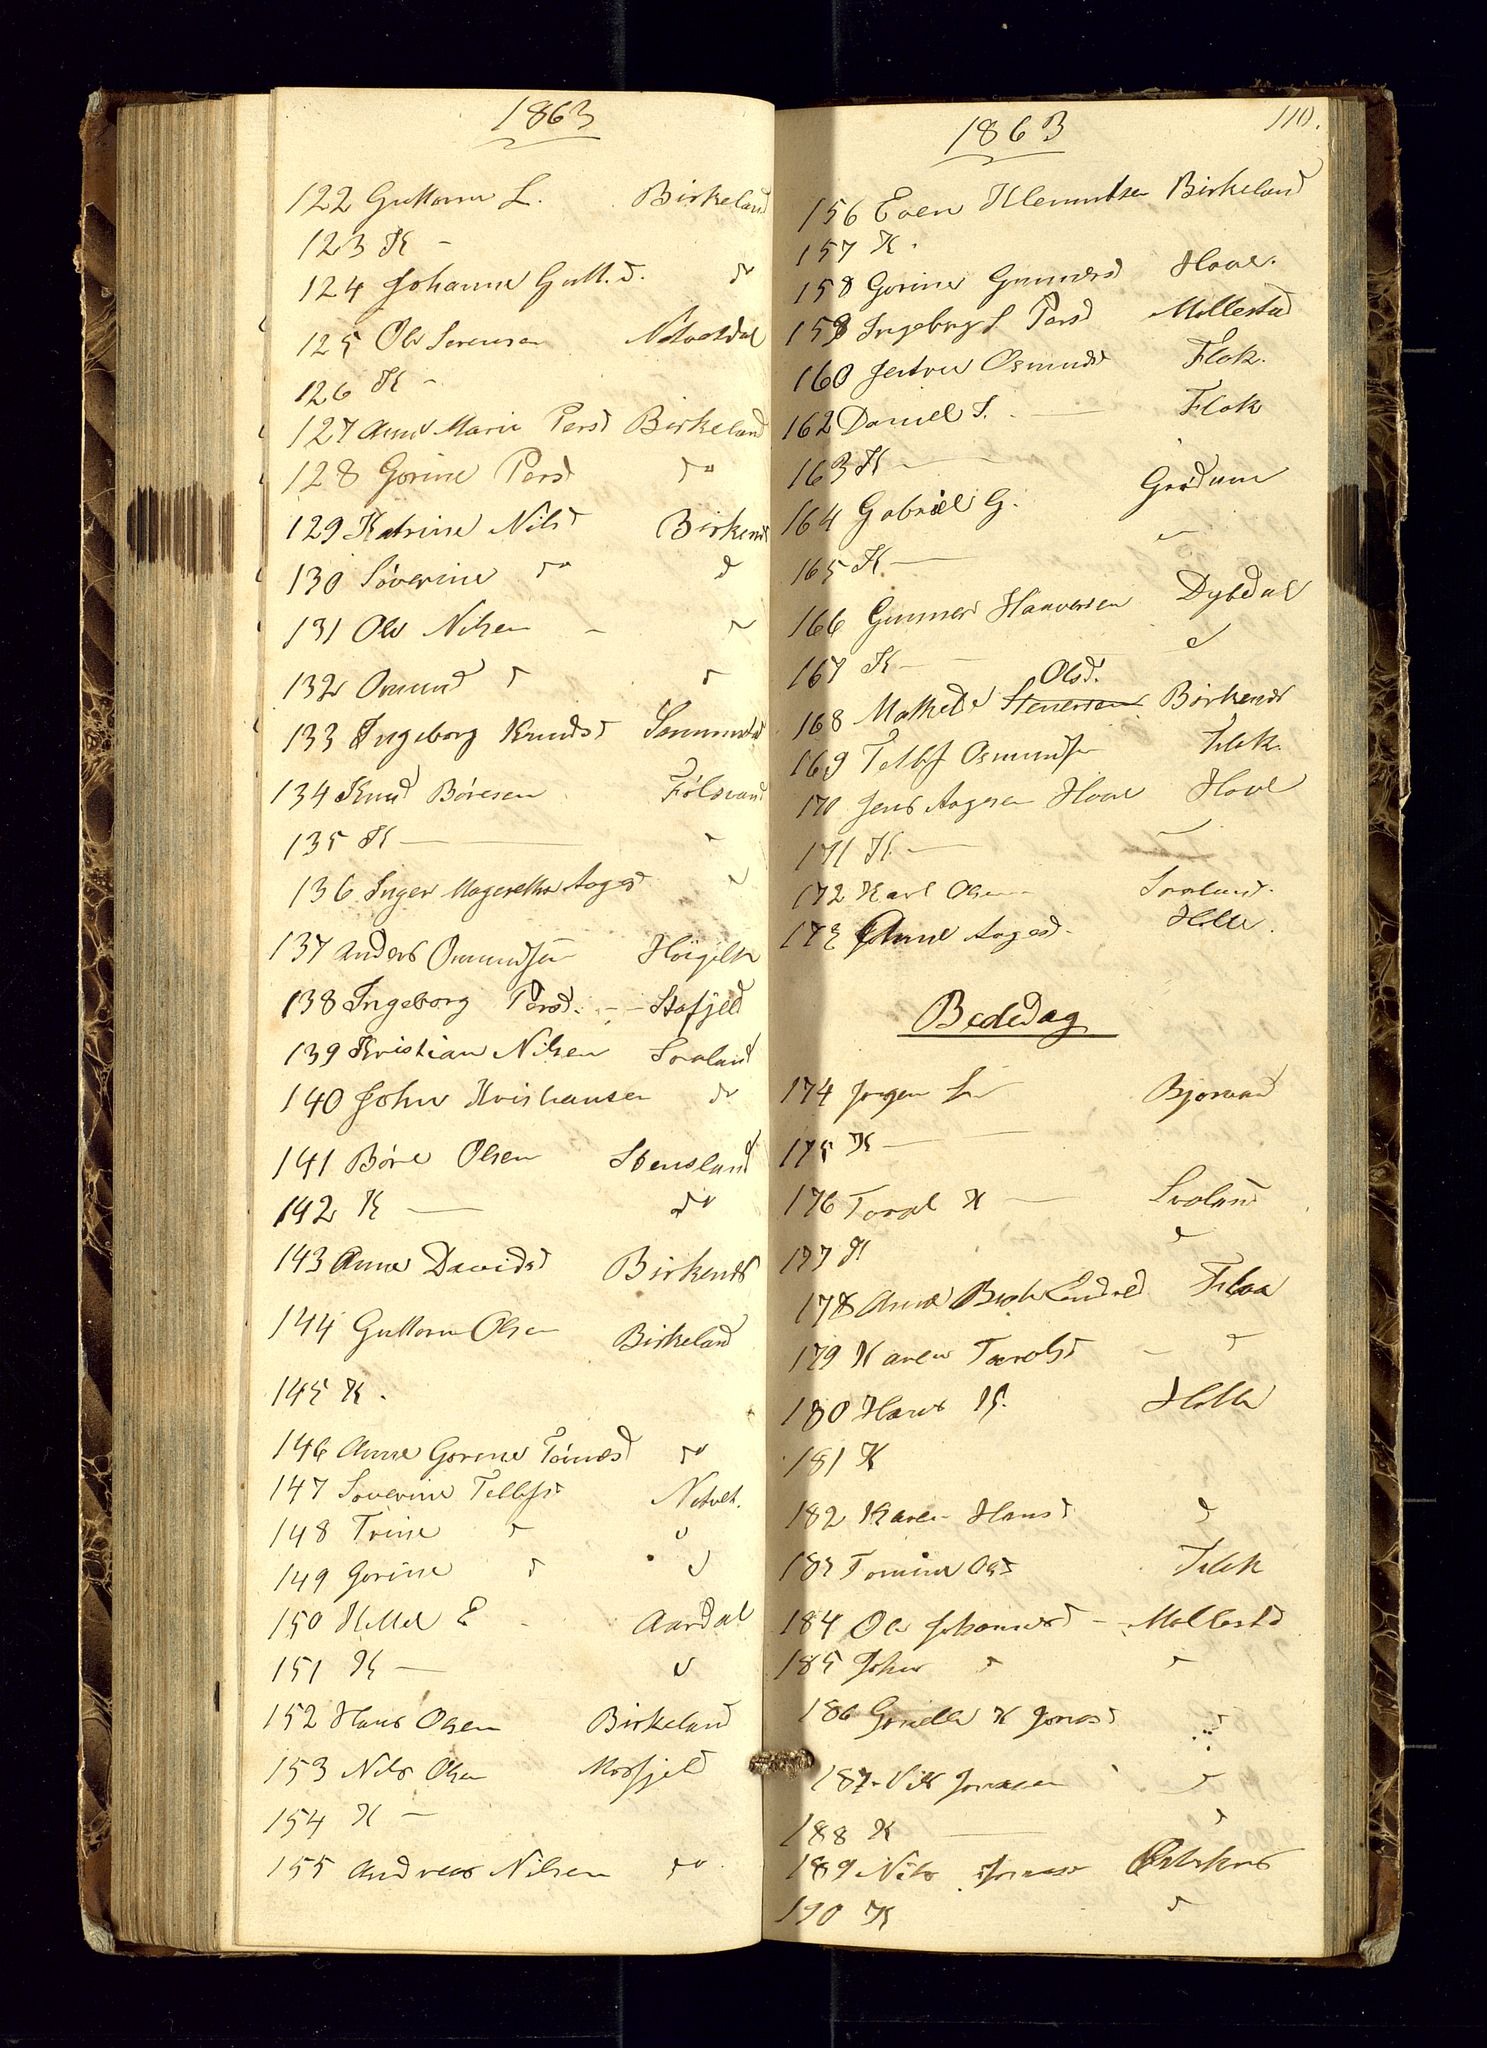 1863
122 Guttorm L. Birkeland
123 K -
124 Johanne Gutt.d. do
125 Ole Sørensen
126 K -
127 Anne Marie Persd Birkeland
128 Gorine Persd do
129 Katrine Nilsd Birkends
130 Søverine do d
131 Ole Nilsen - do
132 Osmund d d
133 Ingeborg Knudsd
134 Knud Børesen Fölsvand
135 K -
136 Inger Magrethe Aagesd
137 Anders Osmundsen
138 Ingeborg Persd. - - Stafjeld
139 Kristian Nilsen Svaland
140 John Kristiansen do
141 Børe Olsen Stensland
142 K - do
143 Anne Davidsd Birkends
144 Guttorm Olsen Birkeland
145 K.
146 Anne Gorine Tönnesd do
147 Søverine Tellefsd Netvet.
148 Trine d
149 Gorine d
150 Kittel E - Aardal
151 K -
152 Hans Olsen Birkeland
153 Nils Olsen Mosfjeld
154 K -
155 Andreas Nilsen do.
110.
1863
156 Even Klemmetsen Birkeland
157 K.
158 Gorine Gunnersd Hove.
159 Ingeborg S Persd Mollestad
160 Osmundsd Flak.
162 Daniel S. - Flak
163 K -
164 Gabriel G. Grødum
165 K -
166 Gunner Haaversen Dybdal
167 K - d
168 Mathilde Stenersen Olsd. Birkends
169 Tellef Osmundsen Flak.
170 Jens Aagesen Hove Hove
171 K -
172 Karl Olsen Svaland.
173 Aagesd. Hille.
Bededag
174 Jørgen Bjorvand
175 K -
176 Taral K - Svaland
177 K d
178 Anne Flaa
179 Karen Taralsd - d
180 Hans Hille
181 K
182 Karen Hansd d
183 Tomine Flak
184 Ole Johannes - Mollestd
185 John d d
186 Gunild K Jonasd d
187 - Nils Jonasen d
188 K - d
189 Nils
190 K d